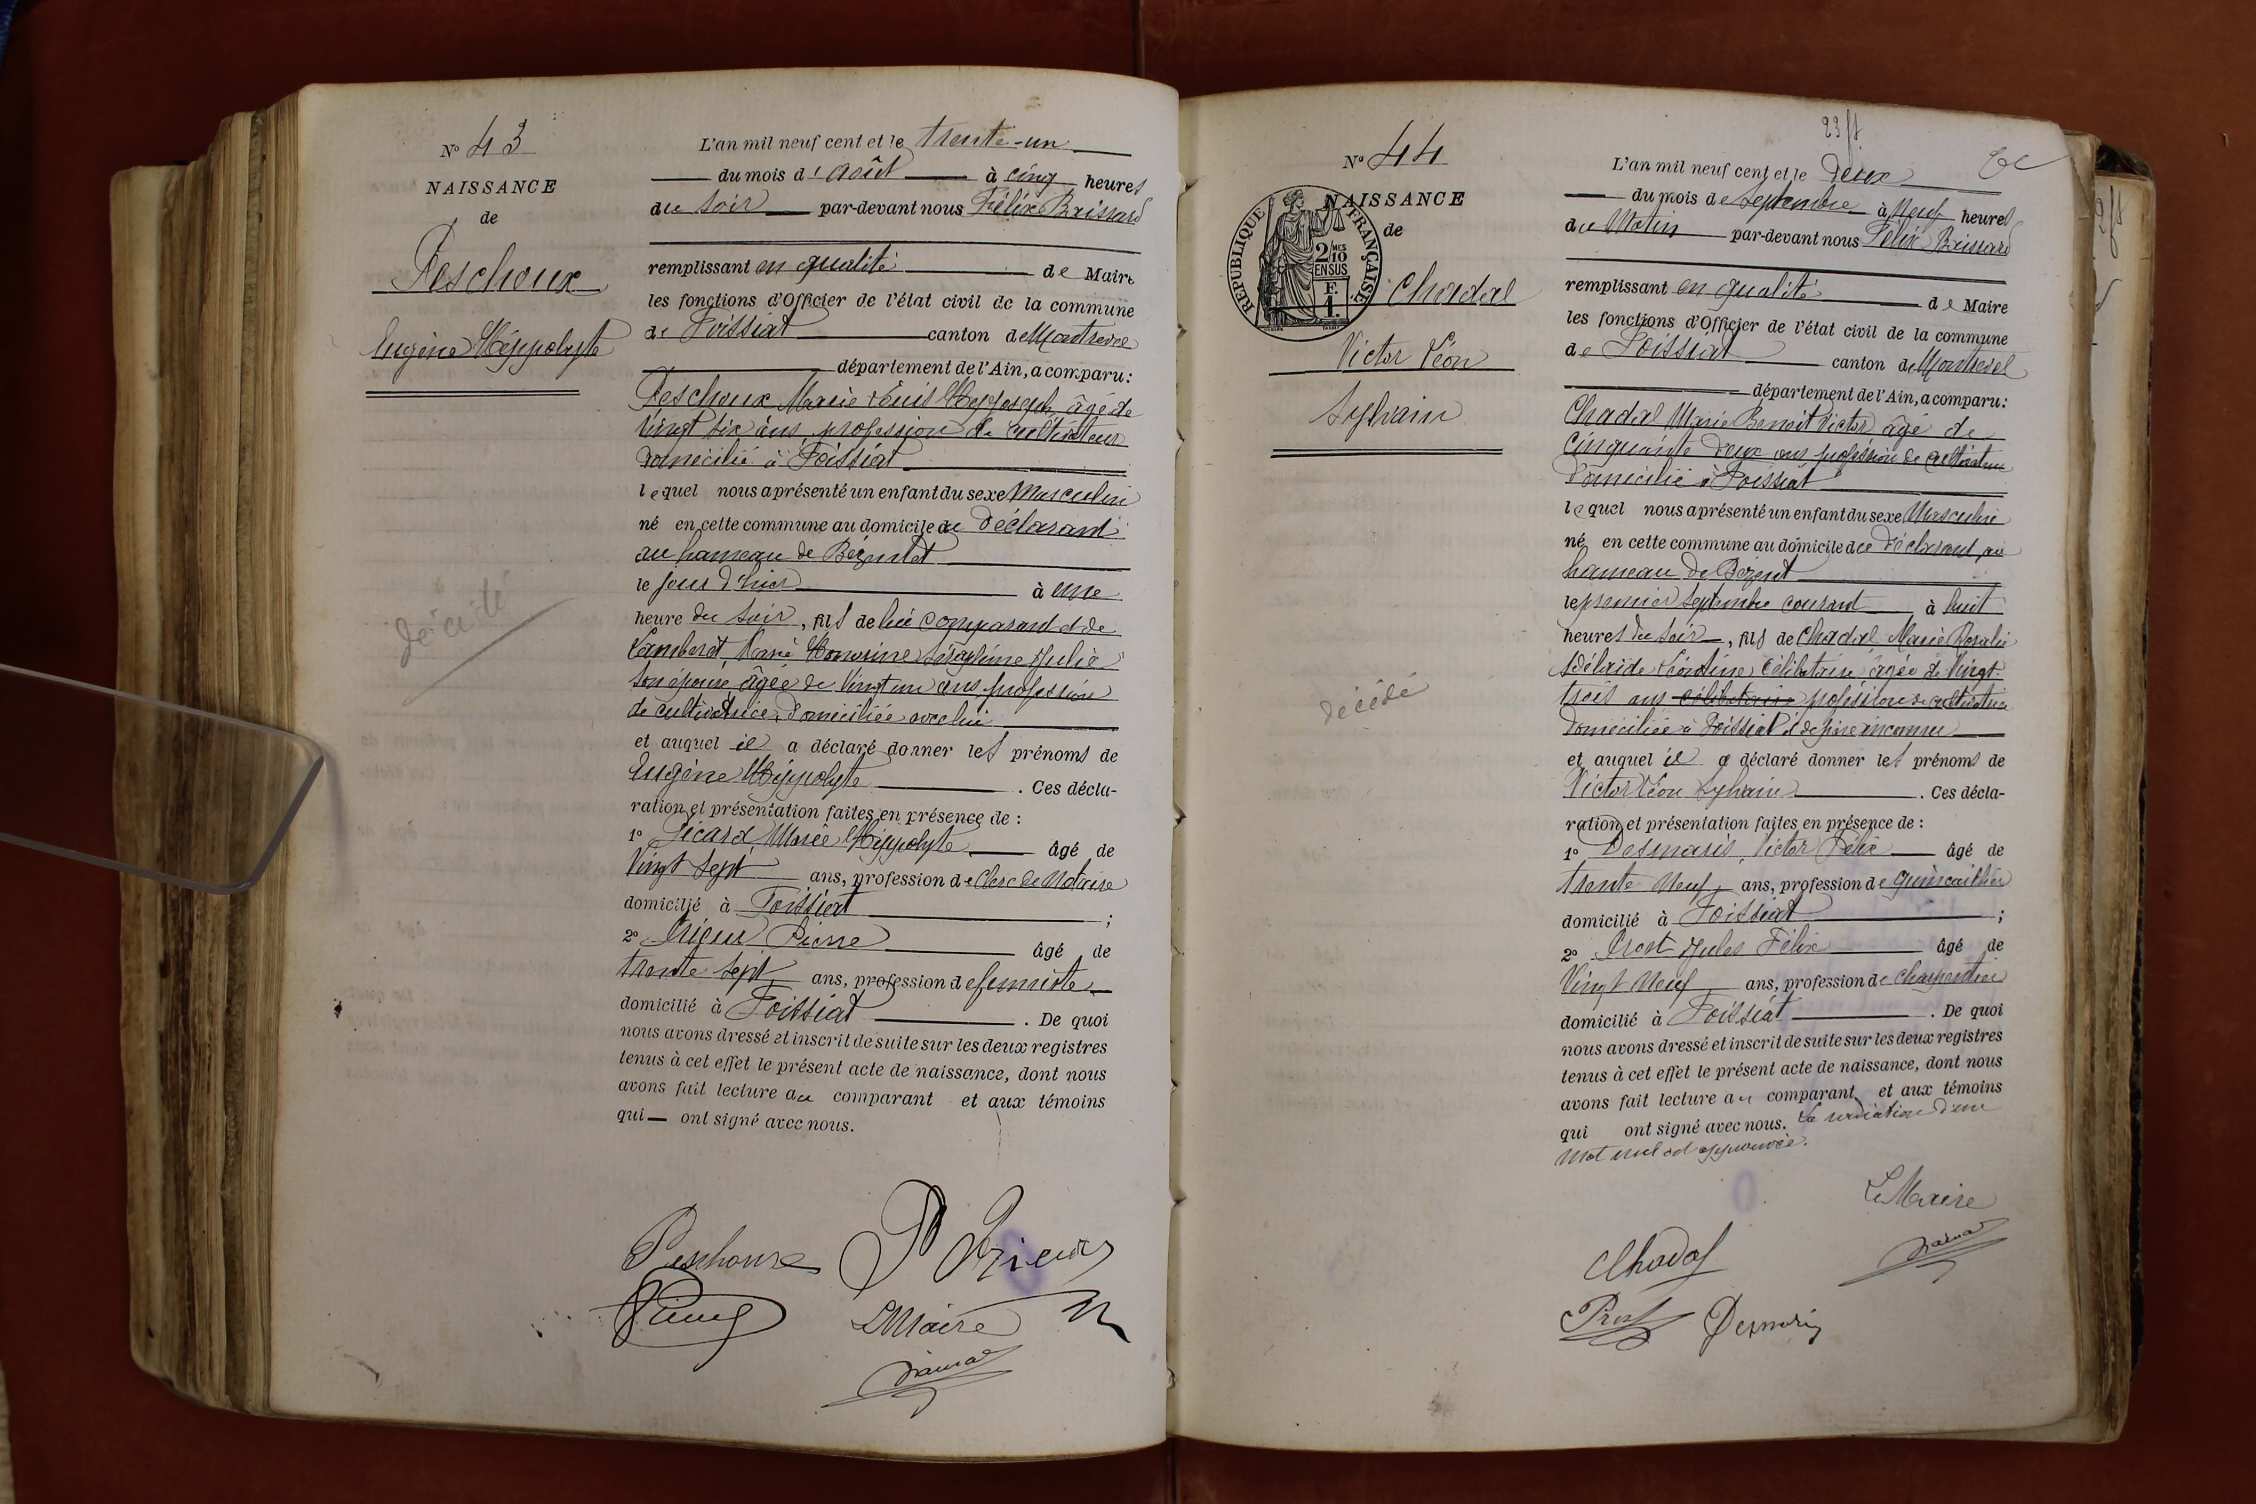 N° 43
NAISSANCE
de
Peschoux
Eugène Hippolyte
décédé
L'an mil neuf cent et le trente-un
du mois d'août à cinq heures
du soir par-devant nous Félix Brissard
remplissant en qualité de Maire
les fonctions d'Officier de l'état civil de la commune
de Foissiat canton de Montrevel
département de l'Ain, a comparu :
Peschoux Marie Louis âgé de
vingt six ans profession de cultivateur
domicilié à Foissiat
lequel nous a présenté un enfant du sexe Masculin
né en cette commune au domicile du déclarant
au hameau de
le jour d'hier à une
heure du soir, fils de lui comparant et de
Lamberet, Marie Honorine Séraphine Julie
son épouse âgée de vingt un ans profession
de cultivatrice, domiciliée avec lui
et auquel il a déclaré donner les prénoms de
Eugène Hippolyte . Ces décla-
ration et présentation faites en présence de :
1° Sicard Marie Hippolyte âgé de
Vingt sept ans, profession de Clerc de Notaire
domicilié à Foissiat ;
2° Prieur Pierre âgé de
trente sept ans, profession de
domicilié à Foissiat . De quoi
nous avons dressé et inscrit de suite sur les deux registres
tenus à cet effet le présent acte de naissance, dont nous
avons fait lecture au comparant et aux témoins
qui ont signé avec nous.
Peschoux P Prieur
Le Maire
N° 44
NAISSANCE
de
RÉPUBLIQUE FRANÇAISE
2 MES
10
EN SUS
F.
1.
Chadal
Victor Léon
Sylvain
décédé
23 ft
L'an mil neuf cent et le deux
du mois de septembre à Neuf heures
du Matin par-devant nous Félix Brissard
remplissant en qualité de Maire
les fonctions d'Officier de l'état civil de la commune
de Foissiat canton de Montrevel
département de l'Ain, a comparu :
Chadal Marie Benoit Victor âgé de
cinquante deux ans profession de cultivateur
domicilié à Foissiat
lequel nous a présenté un enfant du sexe Masculin
né en cette commune au domicile du déclarant au
hameau de
le premier septembre courant à huit
heures du soir, fils de Chadal Marie Rosalie
Adélaïde Léontine, célibataire âgée de vingt
trois ans célibataire profession de cultivatrice
domiciliée à Foissiat et de père inconnu
et auquel il a déclaré donner les prénoms de
Victor Léon Sylvain . Ces décla-
ration et présentation faites en présence de :
1° Desmaris, Victor Félix âgé de
trente Neuf ans, profession de quincaillier
domicilié à Foissiat ;
2° Prost Jules Félix âgé de
Vingt Neuf ans, profession de charpentier
domicilié à Foissiat . De quoi
nous avons dressé et inscrit de suite sur les deux registres
tenus à cet effet le présent acte de naissance, dont nous
avons fait lecture au comparant et aux témoins
qui ont signé avec nous. La radiation d'un
mot nul est approuvée.
Le Maire
Chadal
Prost Desmaris